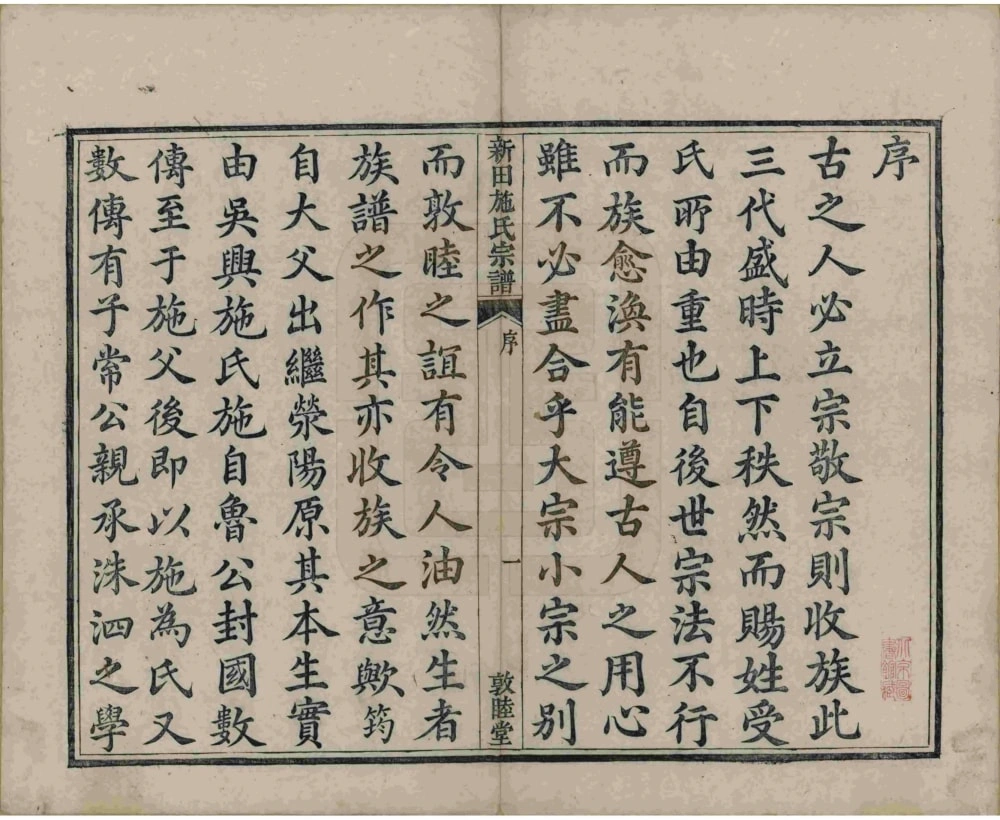 序
古之人必立宗敬宗則收族此
三代盛時上下秩然而賜姓受
氏所由重也自後世宗法不行
而族愈渙有能遵古人之用心
雖不必盡合乎大宗小宗之別
新田施氏宗譜
序
一
敦睦堂
而敦睦之誼有令人油然生者
族譜之作其亦收族之意歟筠
自大父出繼滎陽原其本生實
由吳興施氏施自魯公封國數
傳至于施父後即以施為氏又
數傳有子常公親承洙泗之學